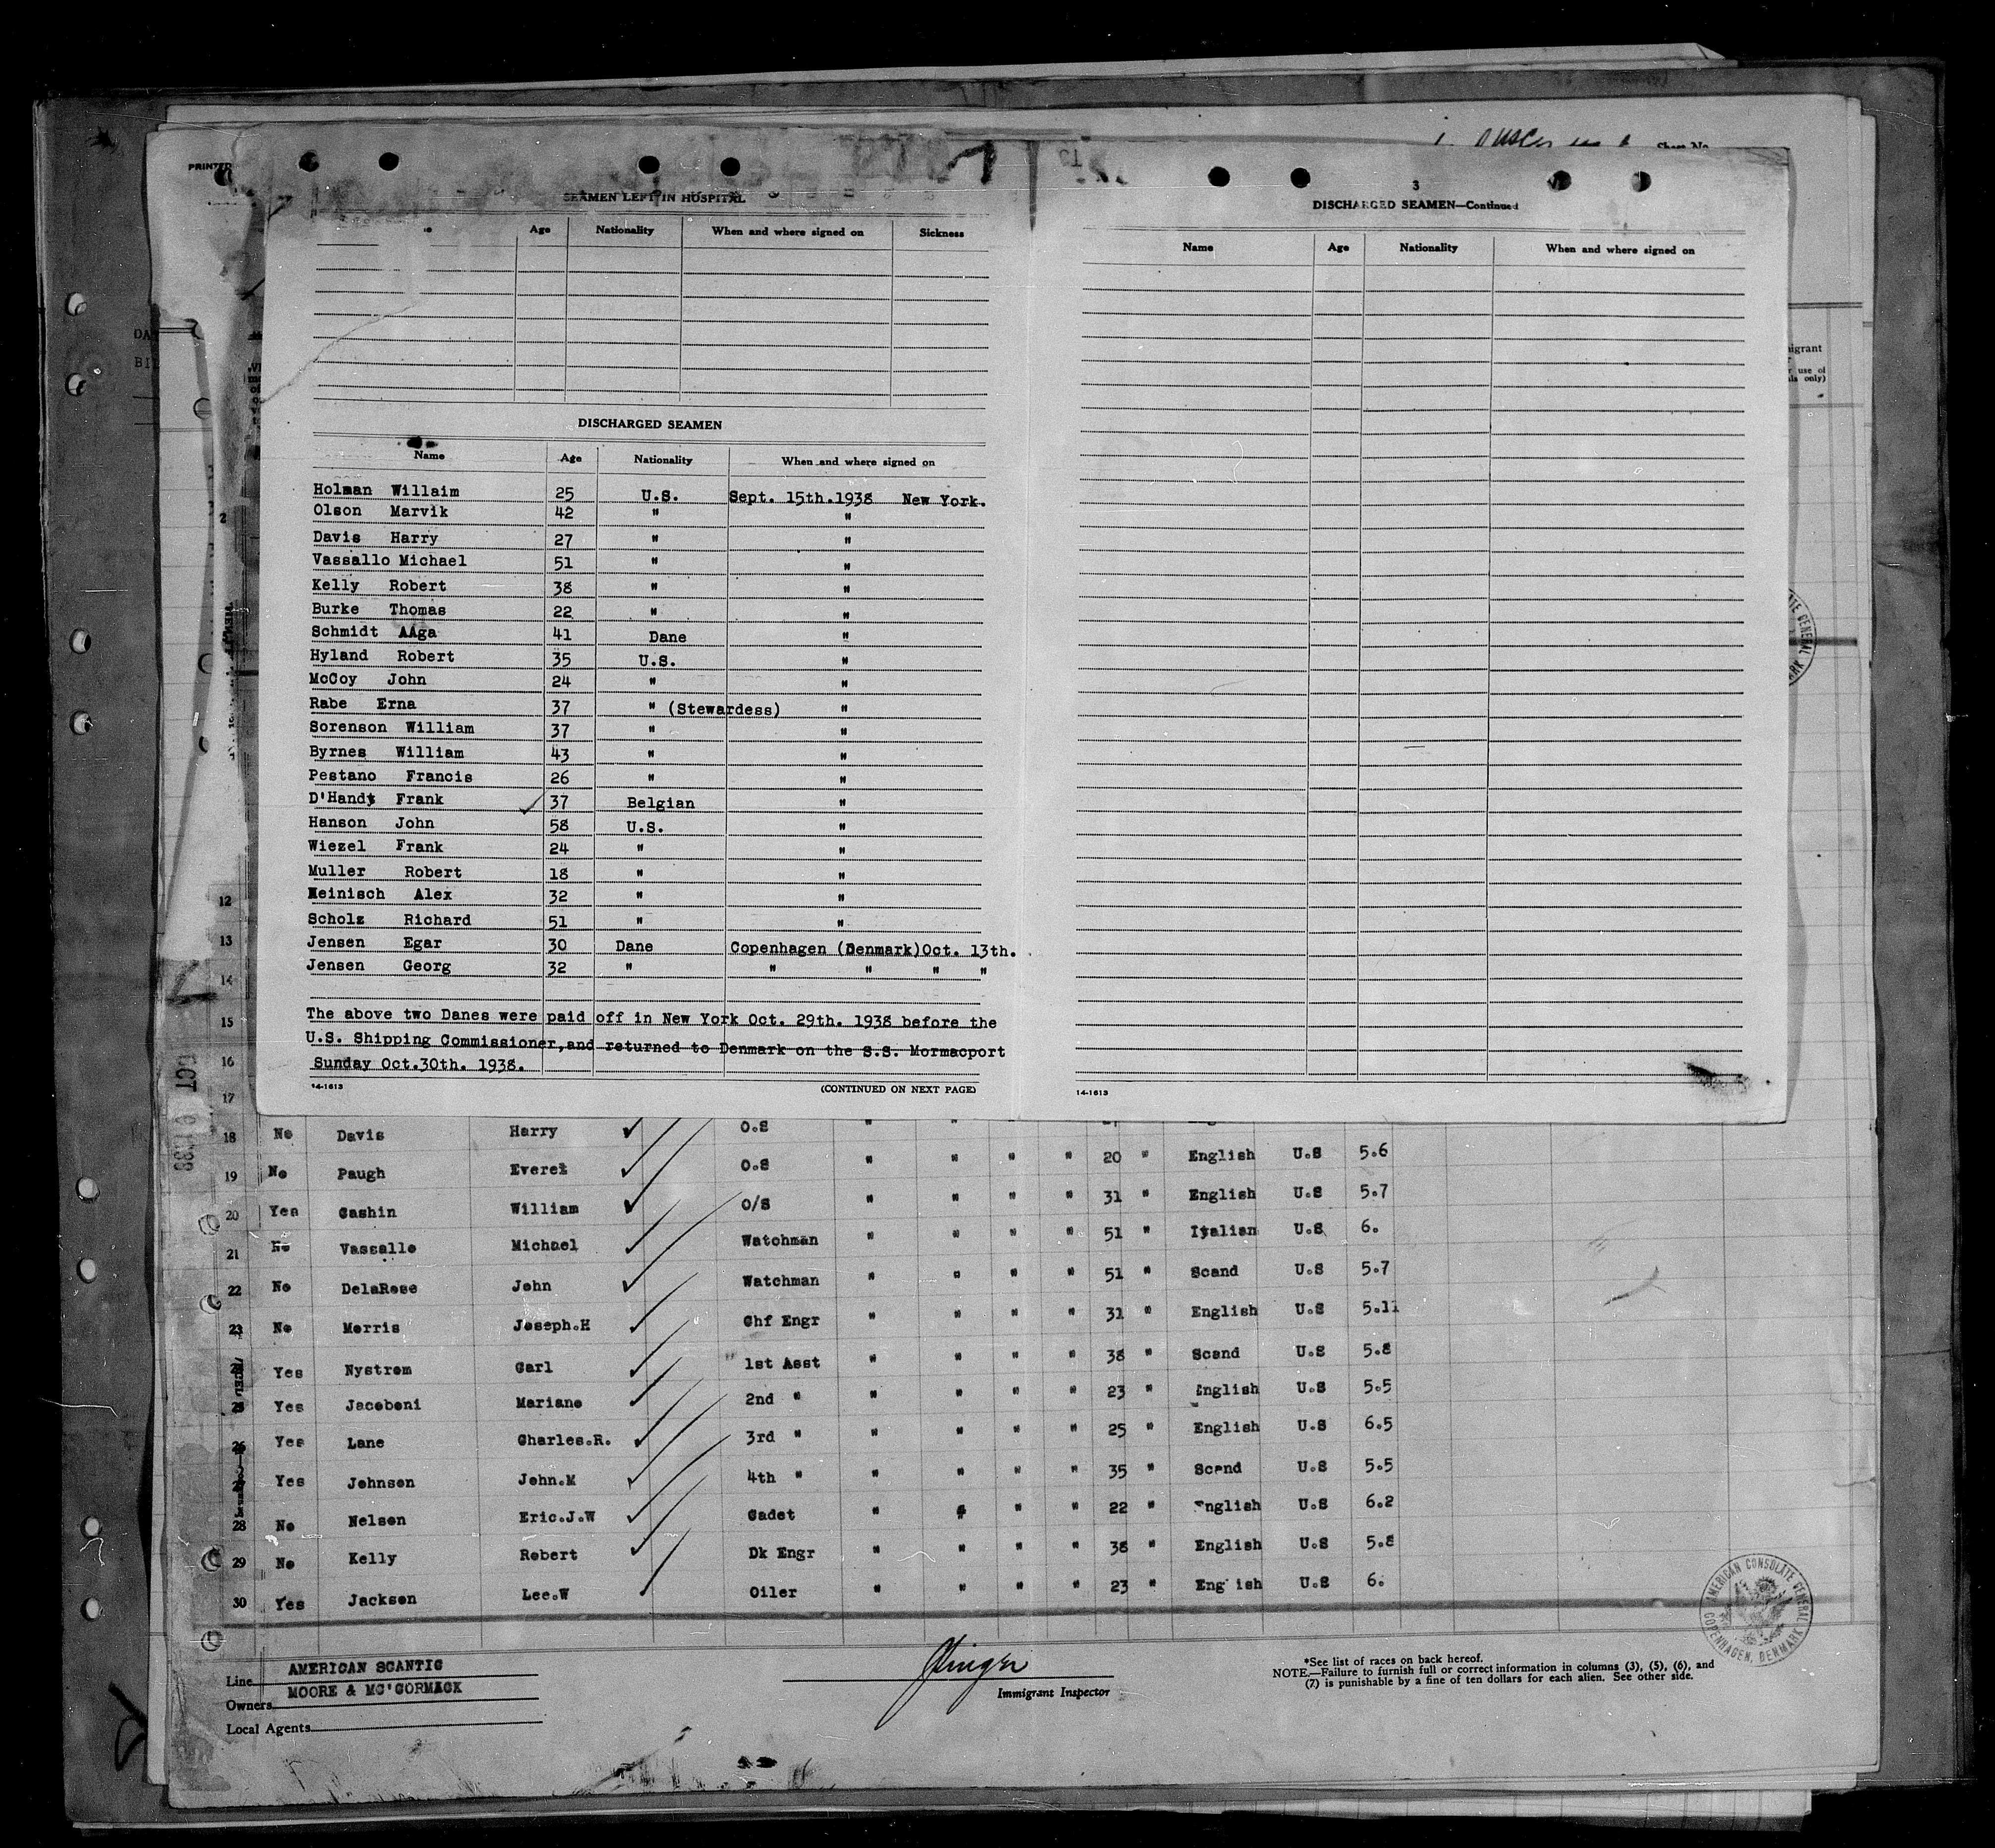 PRINTED
Sheet No.
SEAMEN LEFT IN HOSPITAL
Age Nationality When and where signed on Sickness
DISCHARGED SEAMEN
Name Age Nationality When and where signed on
Holman Willaim 25 U.S. Sept. 15th.1938 New York.
Olson Marvik 42 " "
Davis Harry 27 " "
Vassallo Michael 51 " "
Kelly Robert 38 " "
Burke Thomas 22 " "
Schmidt AAga 41 Dane "
Hyland Robert 35 U.S. "
McCoy John 24 " "
Rabe Erna 37 " (Stewardess) "
Sorenson William 37 " "
Byrnes William 43 " "
Pestano Francis 26 " "
D'Handt Frank 37 Belgian "
Hanson John 58 U.S. "
Wiezel Frank 24 " "
Muller Robert 18 " "
Meinisch Alex 32 " "
Scholz Richard 51 " "
Jensen Egar 30 Dane Copenhagen (Denmark)Oct. 13th.
Jensen Georg 32 " " " " "
The above two Danes were paid off in New York Oct. 29th. 1938 before the
U.S. Shipping Commissioner,and returned to Denmark on the S.S. Mormacport
Sunday Oct.30th. 1938.
14-1613 (CONTINUED ON NEXT PAGE)
3
DISCHARGED SEAMEN—Continued
Name Age Nationality When and where signed on
14-1613
2
12
13
14
15
16
17
18 No Davis Harry O.S " "
19 No Paugh Everet O.S " " " " 20 " English U.S 5.6
20 Yes Cashin William O/S " " " " 31 " English U.S 5.7
21 No Vassallo Michael Watchman " " " " 51 " Italian U.S 6.
22 No DelaRose John Watchman " " " " 51 " Scand U.S 5.7
23 No Morris Joseph.H Chf Engr " " " " 31 " English U.S 5.11
Yes Nystrom Carl 1st Asst " " " " 38 " Scand U.S 5.8
Yes Jacoboni Mariano 2nd " " " " " 23 " English U.S 5.5
26 Yes Lane Charles.R. 3rd " " " " " 25 " English U.S 6.5
Yes Johnson John.M 4th " " " " " 35 " Scand U.S 5.5
28 No Nelson Eric.J.W Cadet " " " " 22 " English U.S 6.2
29 No Kelly Robert Dk Engr " " " " 38 " English U.S 5.8
30 Yes Jackson Lee.W Oiler " " " " 23 " Eng ish U.S 6.
AMERICAN CONSULATE GENERAL
COPENHAGEN, DENMARK
Line AMERICAN SCANTIC
Owners MOORE & MC'CORMACK
Local Agents
Immigrant Inspector
*See list of races on back hereof.
NOTE.—Failure to furnish full or correct information in columns (3), (5), (6), and
(7) is punishable by a fine of ten dollars for each alien. See other side.